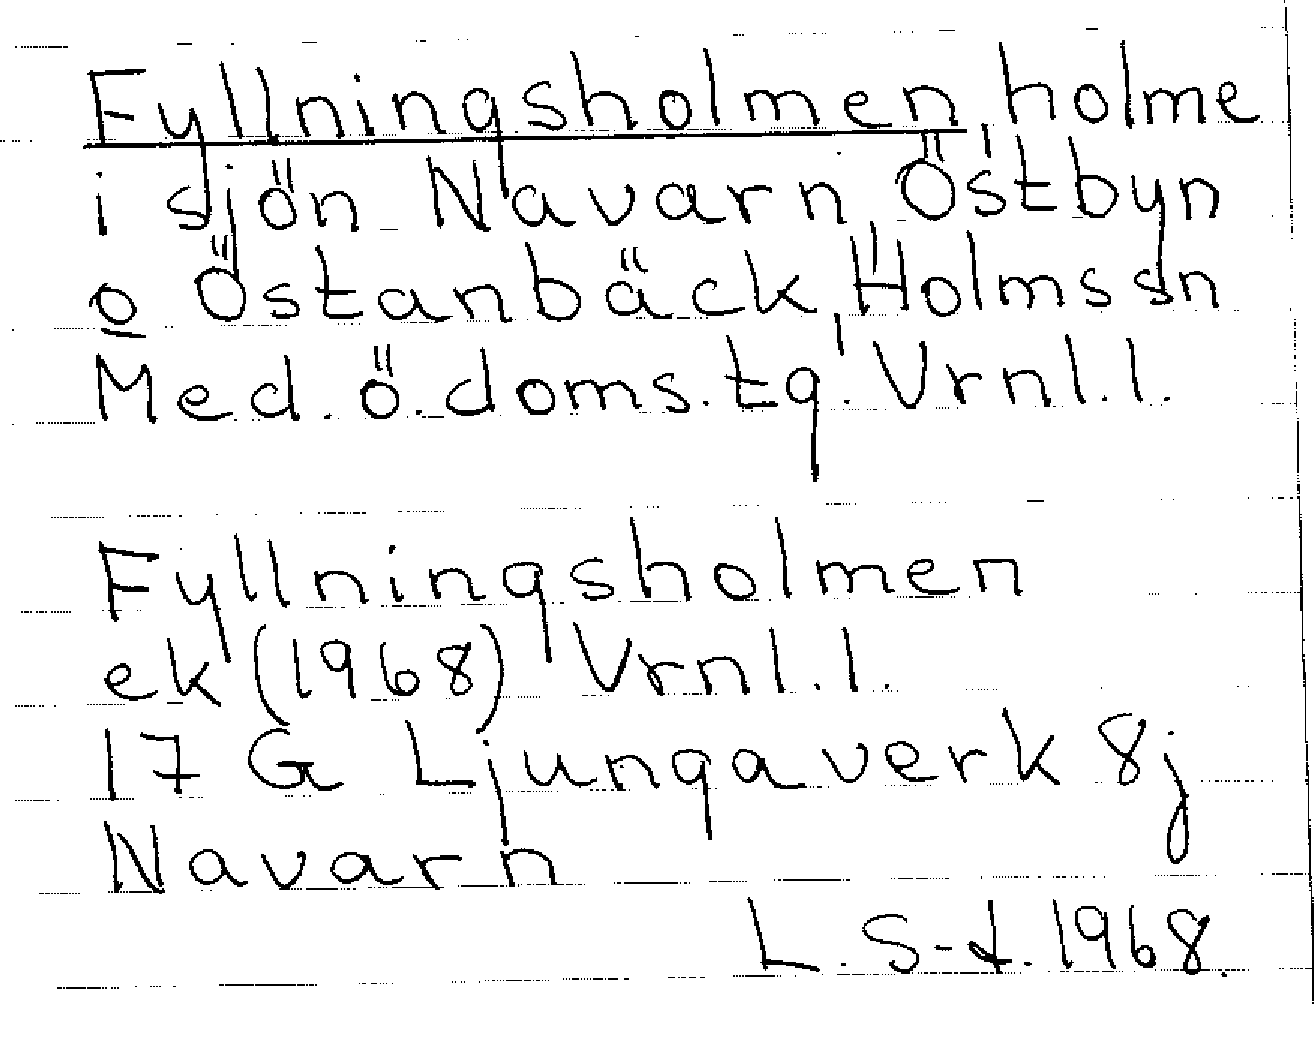 Fyllningsholmen, holme
i sjön Navarn, Östbyn
o Östanbäck, Holms sn
Med. ö. doms. tg. Vrnl. l.
Fyllningsholmen
ek (1968) Vrnl. l.
17 G Ljungaverk 8j
Navarn
L. S-d. 1968.